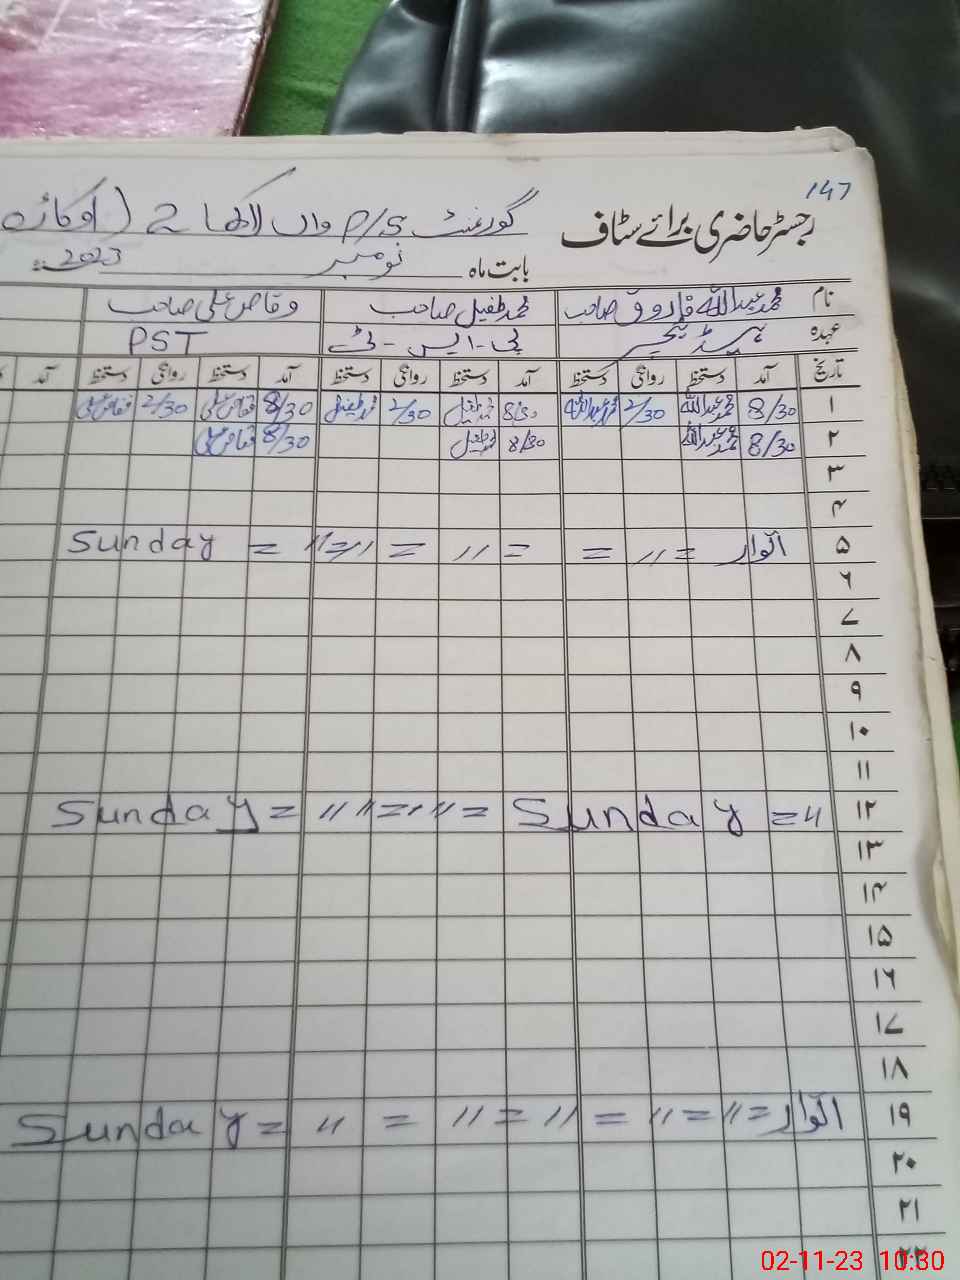 147
رجسٹر حاضری برائے سٹاف
گورنمنٹ P/S واں لکھا (اوکاڑہ
بابت ماہ نومبر 2023
نام محمد عبداللہ فاروق صاحب محمد طفیل صاحب وقاص علی صاحب
عہدہ ہیڈ ٹیچر پی-ایس-ٹی PST
تاریخ آمد دستخط روانگی دستخط آمد دستخط روانگی دستخط آمد دستخط روانگی دستخط آمد
۱ 8/30 محمد عبداللہ 2/30 محمد عبداللہ 8/30 محمد طفیل 2/30 محمد طفیل 8/30 وقاص علی 2/30 وقاص علی
۲ 8/30 محمد عبداللہ 8/30 محمد طفیل 8/30 وقاص علی
۳
۴
۵ اتوار = 〃 = = 〃 = 〃 = 〃 = Sunday
۶
۷
۸
۹
۱۰
۱۱
۱۲ 〃 = Sunday = 〃 = 〃 〃 = Sunday
۱۳
۱۴
۱۵
۱۶
۱۷
۱۸
۱۹ اتوار = 〃 = 〃 = 〃 = 〃 = 〃 = Sunday
۲۰
۲۱
۲۲
02-11-23 10:30